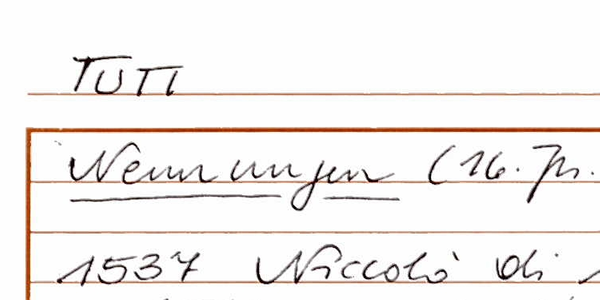 TUTI
Nennungen (16. Jh.
1537 Niccolò di